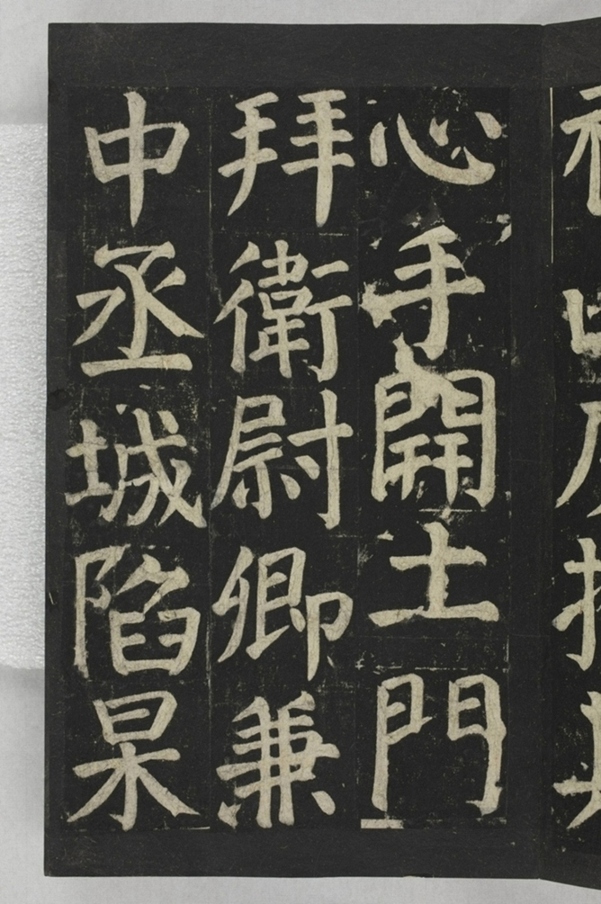 心手開土門
拜衛尉卿兼
中丞城陷杲